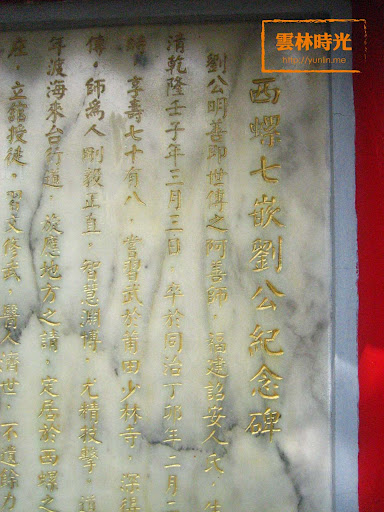 雲林時光
http://yunlin.me
西螺七嵌劉公紀念碑
劉公明善即世傳之阿善師,福建詔安人氏,生
清乾隆壬子年三月三日,卒於同治丁卯年二月二
享壽七十有八,嘗習武於莆田少林寺,深得
傳,師為人剛毅正直,智慧淵博,尤精技擊,道
年渡海來台行道,旋應地方之請,定居於西螺之
立舘授徒,習文修武,醫人濟世,不遺餘力